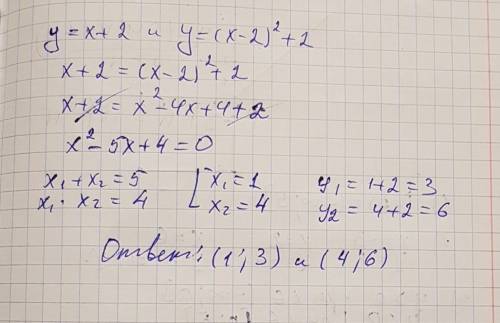 y = x + 2 и y = (x - 2)² + 2
x + 2 = (x - 2)² + 2
x + 2 = x² - 4x + 4 + 2
x² - 5x + 4 = 0
x₁ + x₂ = 5
x₁ · x₂ = 4
[ x₁ = 1
x₂ = 4
y₁ = 1 + 2 = 3
y₂ = 4 + 2 = 6
Ответ: (1; 3) и (4; 6)